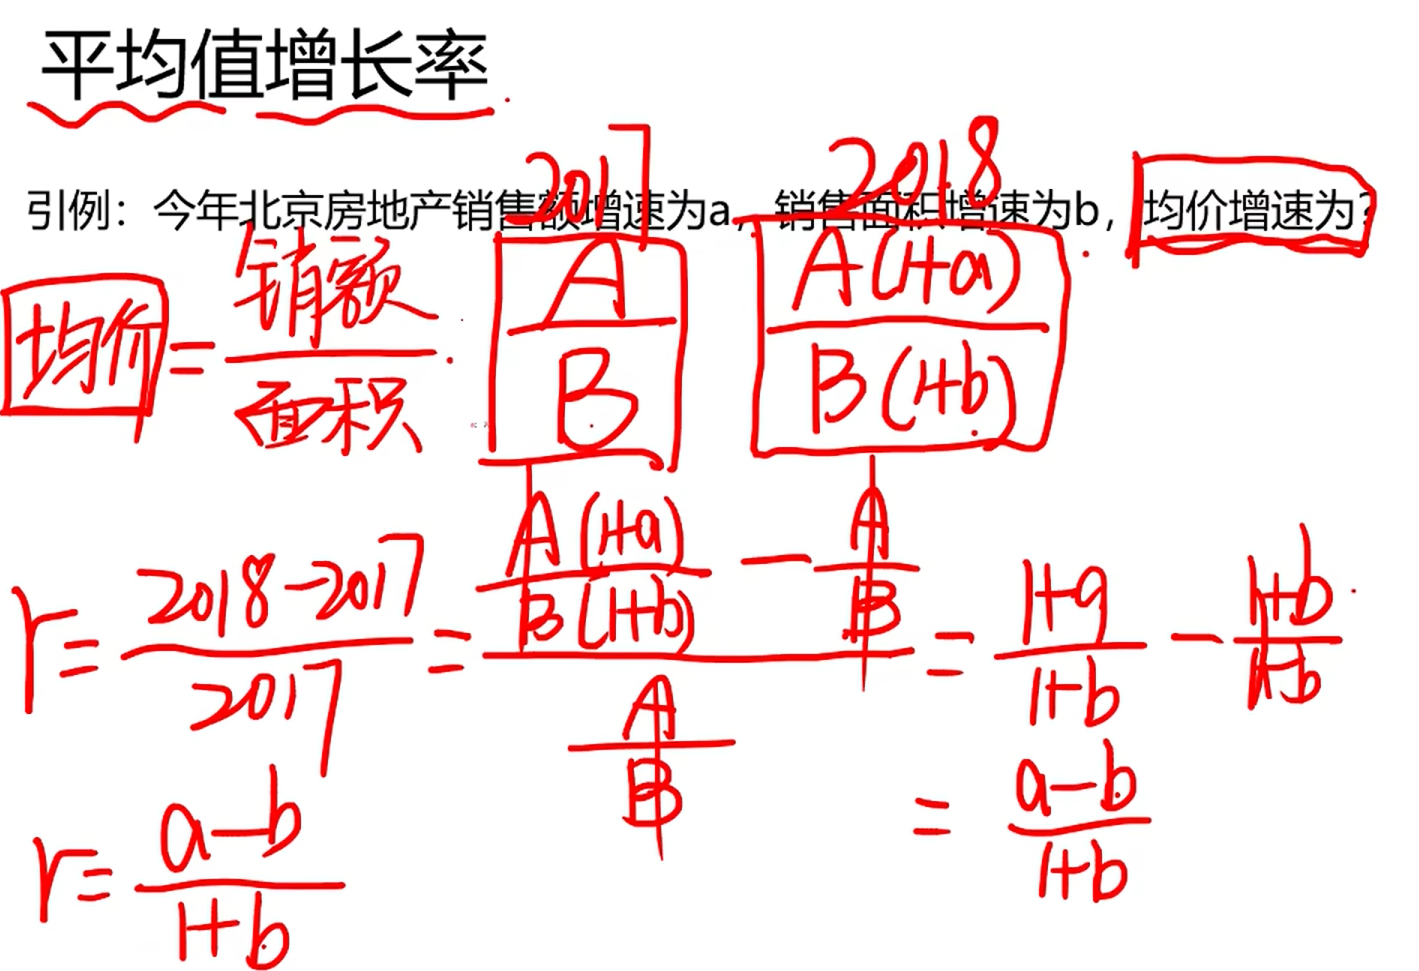 平均值增长率
2017 2018
引例：今年北京房地产销售额增速为a，销售面积增速为b，均价增速为？
均价 = 销额 / 面积
A / B
A(1+a) / B(1+b)
r = 2018-2017 / 2017 = A(1+a) / B(1+b) - A / B / A / B = 1+a / 1+b - 1+b / 1+b
= a-b / 1+b
r = a-b / 1+b